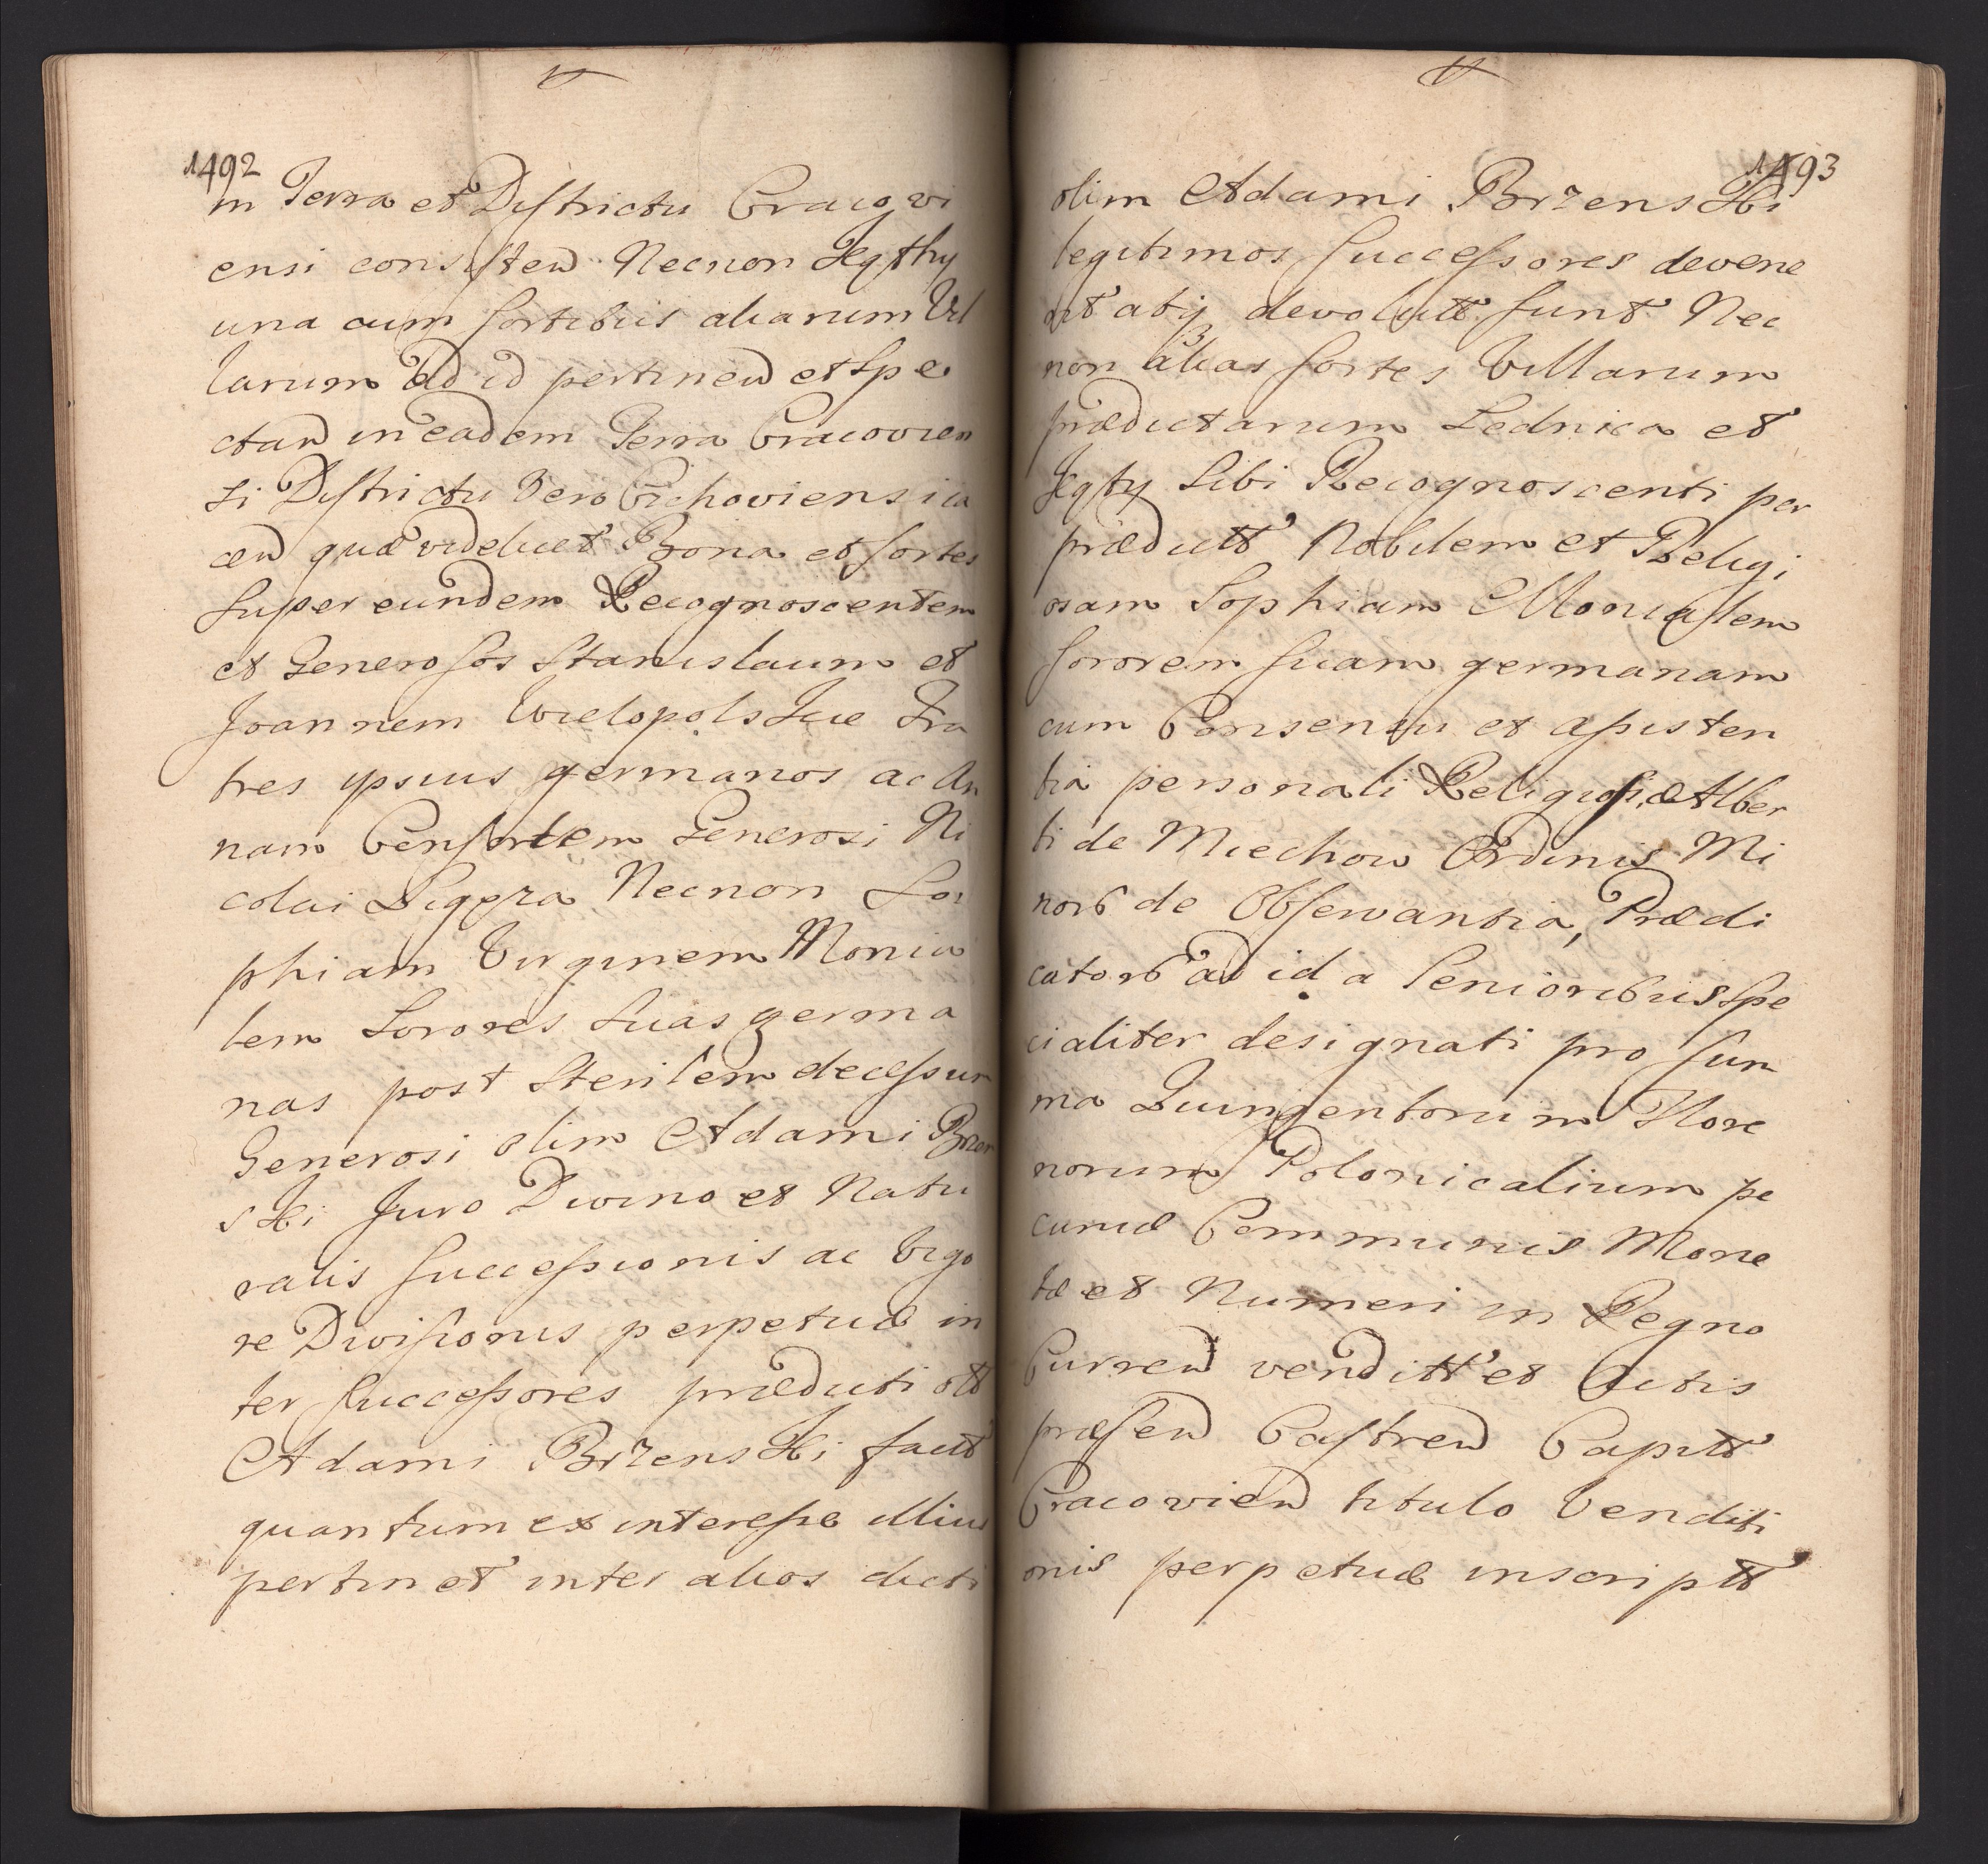 1492
in Terra et Districtu Cracovi
ensi consisten Necnon Jegthy
una cum sortibus aliarum Vil
larum ad id pertinen et Spe
ctan in eadem Terra Cracovien
si Districtu Vero Cichoviensi ia
cen quæ videlicet Bona et sortes
super eundem Recognoscentem
et Generosos Stanislaum et
Joannem Wielopolskie Fra
tres ipsius germanos ac An
nam Consortem Generosi Ni
colai Ligęza Necnon So
phiam Virginem Monia
lem Sorores Suas germa
nas post Sterilem decessum
Generosi olim Adami Brzen
ski Jure Divino et Natu
ralis successionis ac Vigo
re Divisionis perpetuæ in
ter Successores prædicti olt
Adami Brzenski fact
quantum ex interesse illius
pertinet inter alios dicti
1493
olim Adami Brzenski
legitimos successores devene
rt atq devolutt sunt Nec
non alias sortes Villarum
prædictarum Lednica et
Jegty Sibi Recognoscenti per
prædictt Nobilem et Religi
osam Sophiam Monialem
sororem suam germanam
cum Consensu et assisten
tia personali Religiosi Alber
ti de Miechow Ordinis Mi
norb de Observantia, Prædi
catorb ad id a Senioribus Spe
cialiter designati pro sum
ma Quingentorum Flore
norum Polonicalium pe
cuniæ Communis Mone
tæ et Numeri in Regno
Curren venditt et Actis
præsen Castren Capitt
Cracovien titulo Venditi
onis perpetuæ inscriptt